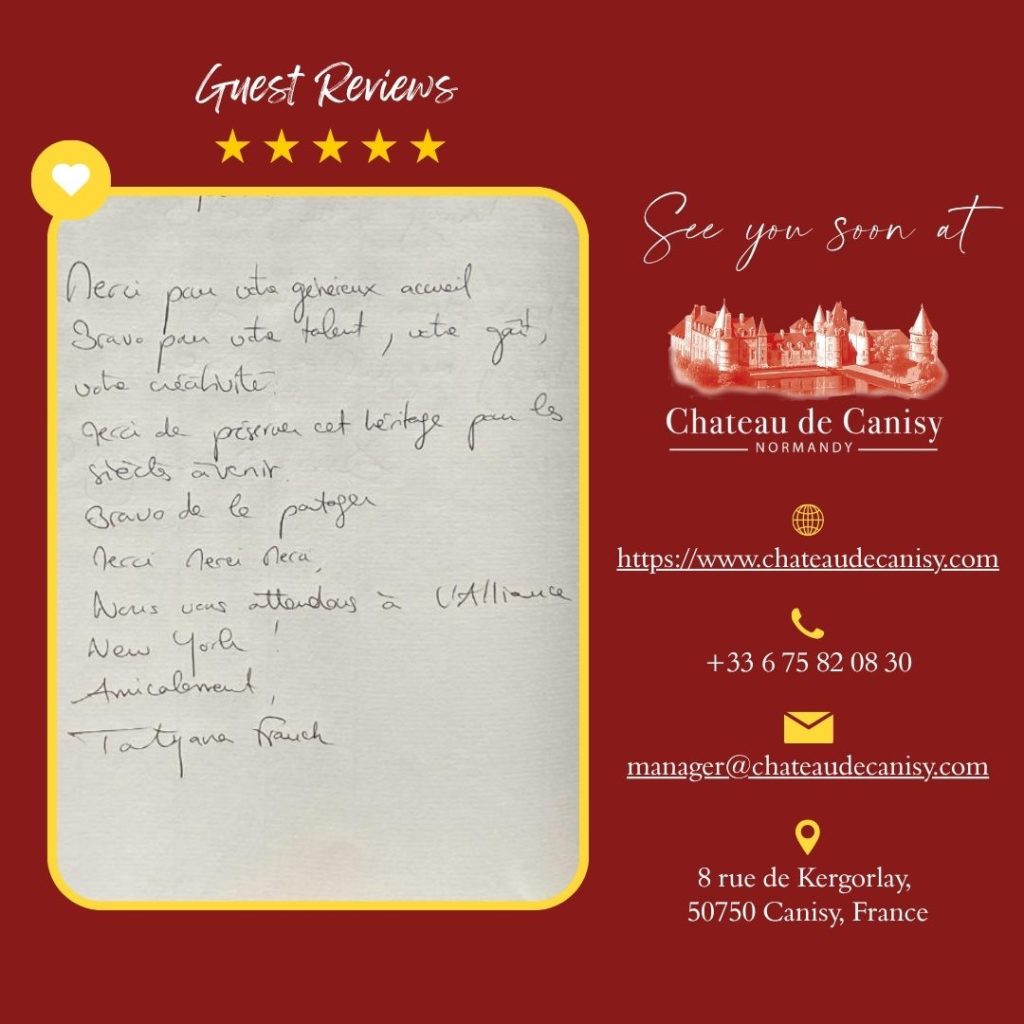 Guest Reviews
Merci pour votre généreux accueil
Bravo pour votre talent, votre goût,
votre créativité.
Merci de préserver cet héritage pour les
siècles à venir.
Bravo de le partager
Merci Merci Merci,
Nous vous attendons à L'Alliance
New York !
Amicalement,
Tatyana Franck
See you soon at
Chateau de Canisy
NORMANDY
https://www.chateaudecanisy.com
+33 6 75 82 08 30
manager@chateaudecanisy.com
8 rue de Kergorlay,
50750 Canisy, France